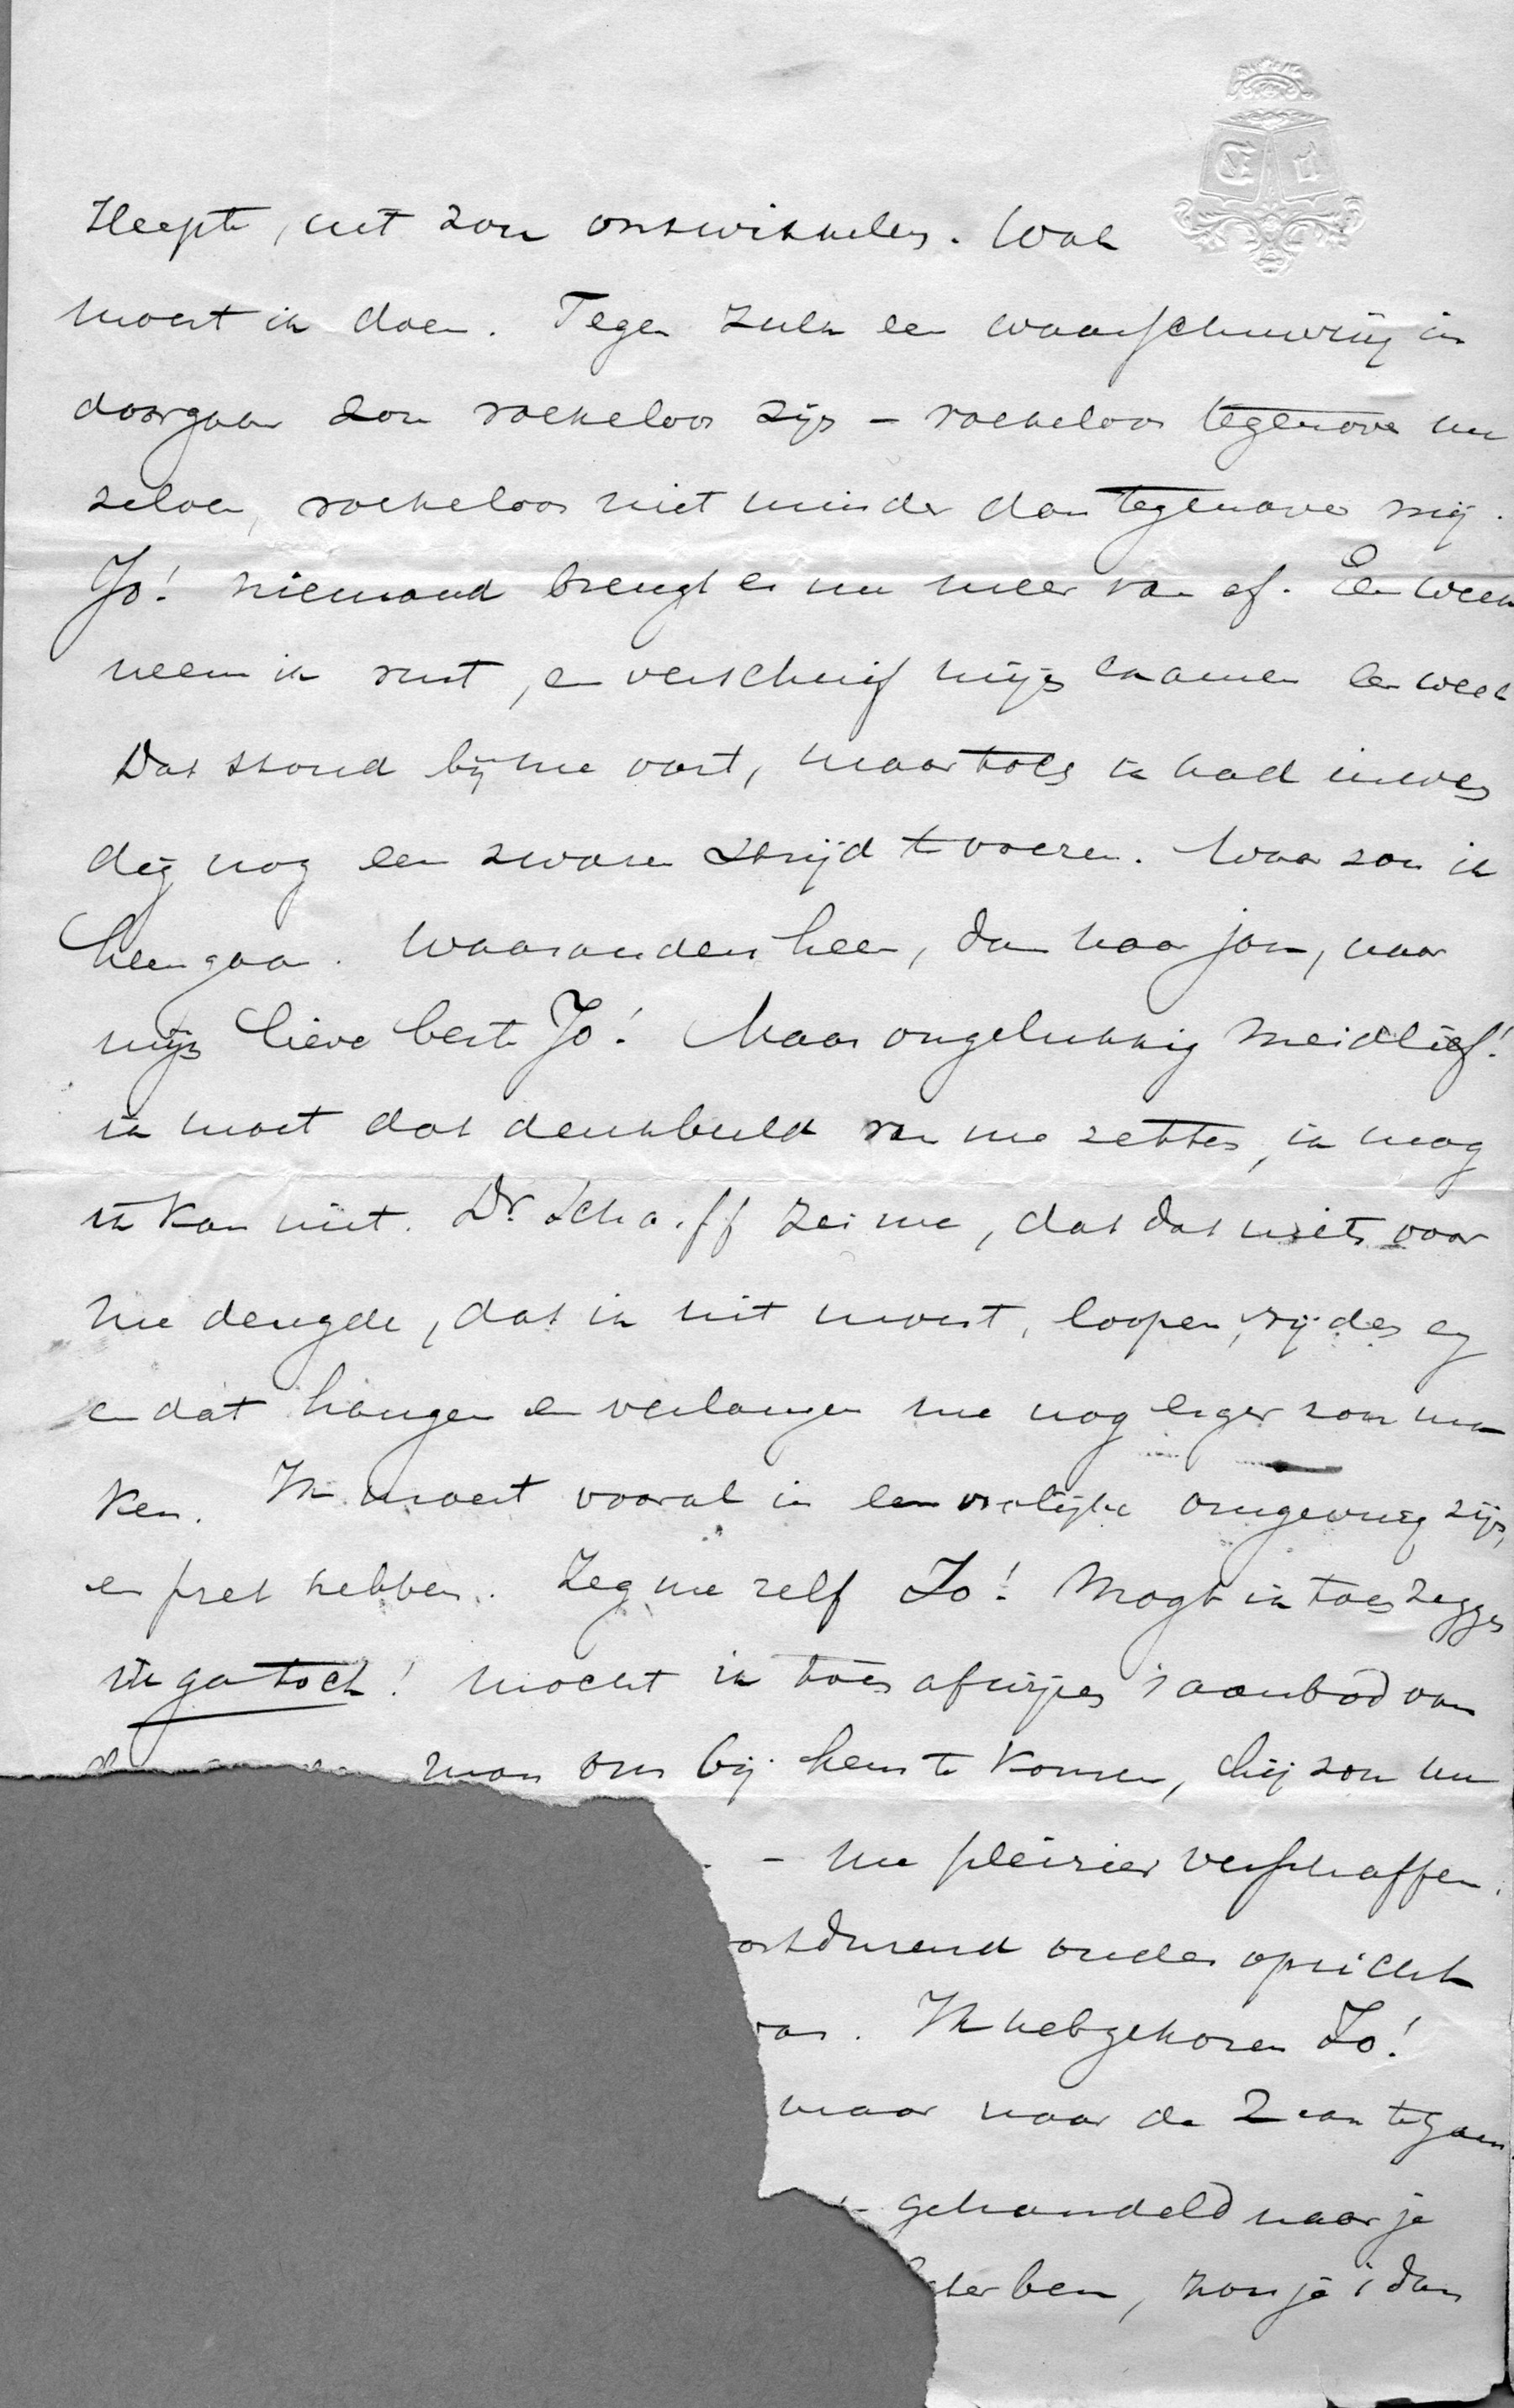 sleepte, uit zou ontwikkelen. Wat
moest ik doen. Tegen zulk een waarschuwing in
doorgaan zou roekeloos zijn – roekeloos tegenover me
zelven, roekeloos niet minder dan tegenover mij.
Jo! niemand brengt er me meer van af. Een week
neem ik rust, en verschuif mijn examen een week
Dat stond bij me vast, maar toen ik had inwen
dig nog een zware strijd te voeren. Waar zou ik
heengaan. Waar anders heen, dan naar jou, naar
mijn lieve beste Jo! Maar ongelukkig meidlief!
ik moet dat denkbeeld van me zetten, ik mag
ik kan niet. Dr. Schaiff zei me, dat dat niets voor
me deugde, dat ik uit moest, loopen, rijden en
en dat hangen en verlangen me nog erger zou ma
ken. Ik moest vooral in een vrolijke omgeving zijn,
en pret hebben. Zeg me zelf Jo! Mogt ik toen zeggen
ik ga toch! mocht ik toen afwijzen 't aanbod van
man om bij hem te komen, hij zou me
– me pleizier verschaffen.
ortdurend onder opzicht
was. Ik heb gekozen Jo!
maar naar de Zaan te gaan.
gehandeld naar je
ter ben, hou je 't dan